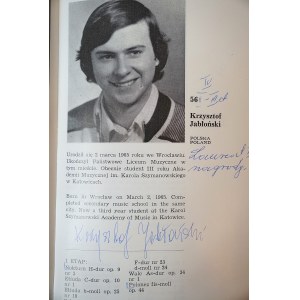 56.
IV
Krzysztof
Jabłoński
POLSKA
POLAND
Urodził się 2 marca 1965 roku we Wrocławiu.
Ukończył Państwowe Liceum Muzyczne w
tym mieście. Obecnie student III roku Aka-
demii Muzycznej im. Karola Szymanowskiego
w Katowicach.
Born in Wrocław on March 2, 1965. Com-
pleted secondary music school in the same
city. Now a third year student of the Karol
Szymanowski Academy of Music in Katowice.
Krzysztof Jabłoński
I ETAP:
Nokturn H-dur op. 9
nr 3
Etiuda C-dur op. 10
nr 1
Etiuda h-moll op. 25
nr 10
F-dur nr 23
d-moll nr 24
Walc As-dur op. 34
nr 1
Polonez fis-moll
op. 44